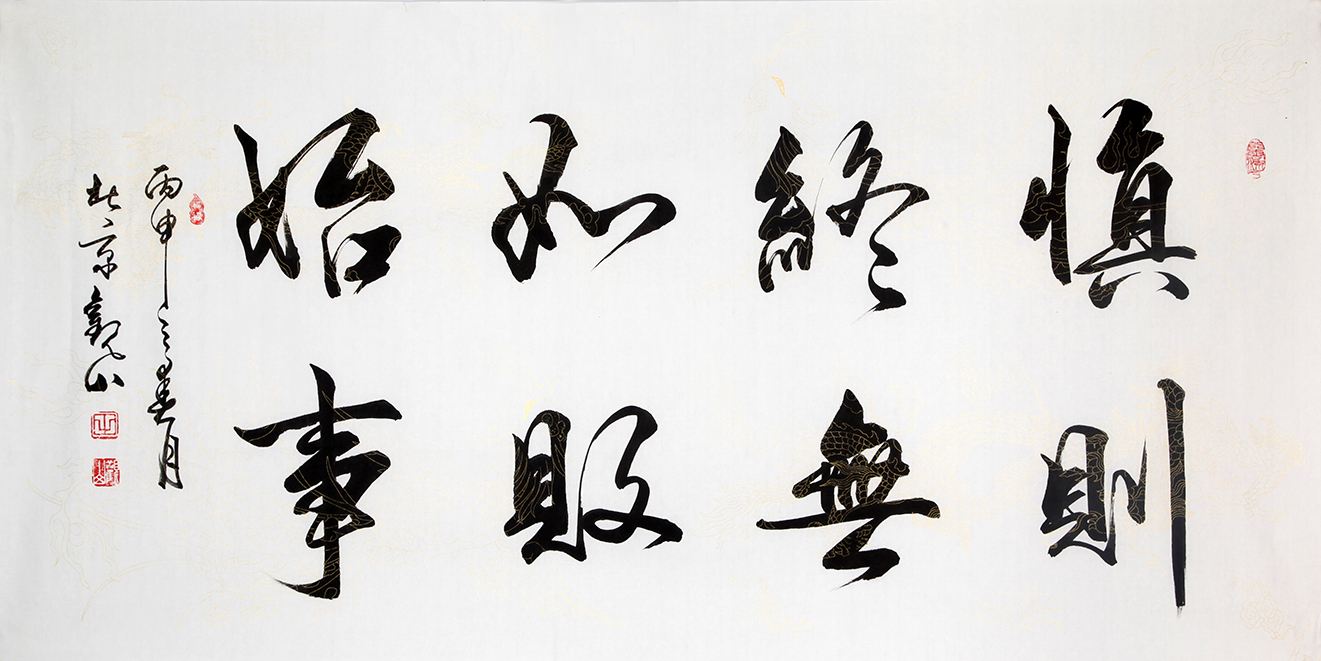 慎終如始
則無敗事
丙申之春月
北京
山